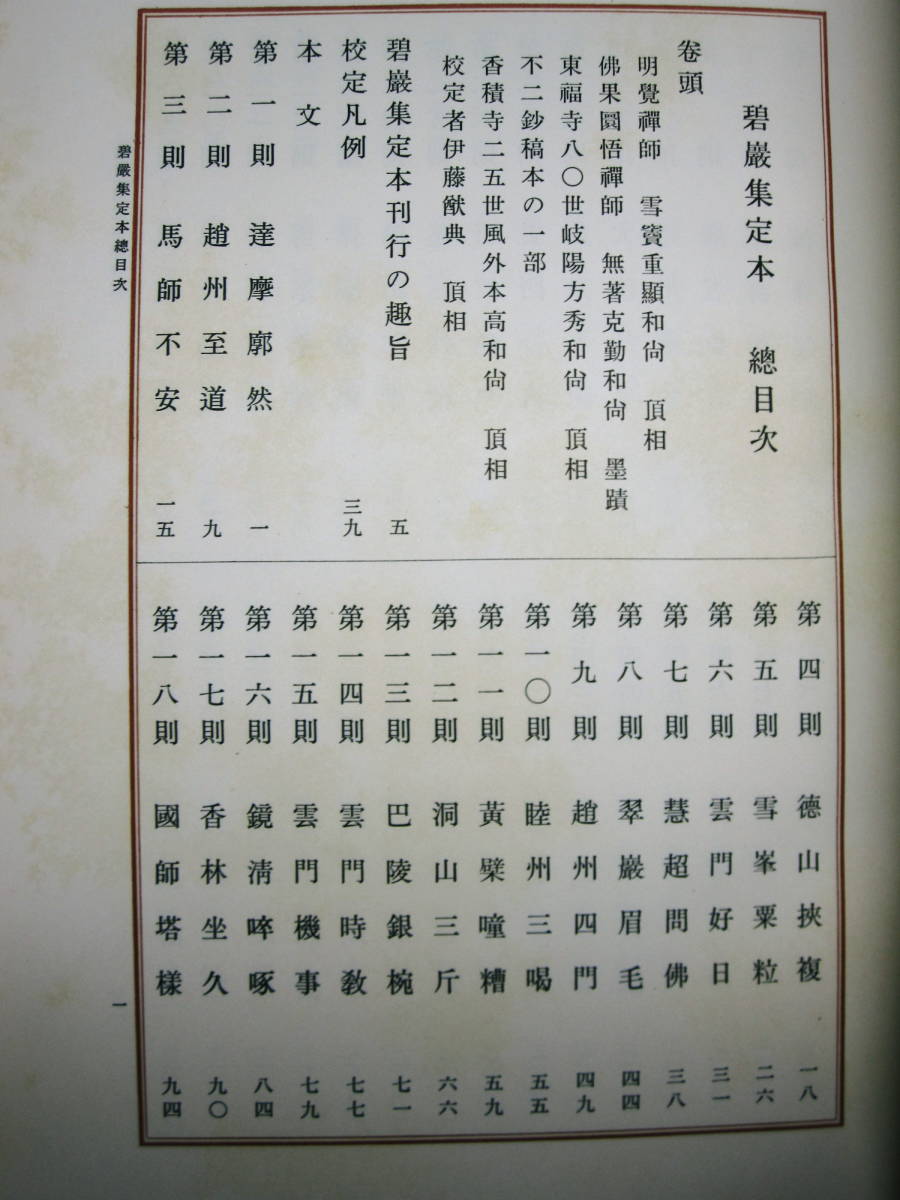 碧巖集定本　總目次
卷頭
明覺禪師　雪竇重顯和尙　頂相
佛果圜悟禪師　無著克勤和尙　墨蹟
東福寺八〇世岐陽方秀和尙　頂相
不二鈔稿本の一部
香積寺二五世風外本高和尙　頂相
校定者伊藤猷典　頂相
碧巖集定本刊行の趣旨　五
校定凡例　三九
本文
第一則　達摩廓然　一
第二則　趙州至道　九
第三則　馬師不安　一五
第四則　德山挾複　一八
第五則　雪峯粟粒　二六
第六則　雲門好日　三一
第七則　慧超問佛　三八
第八則　翠巖眉毛　四四
第九則　趙州四門　四九
第一〇則　睦州三喝　五五
第一一則　黃檗噇糟　五九
第一二則　洞山三斤　六六
第一三則　巴陵銀椀　七一
第一四則　雲門時敎　七七
第一五則　雲門機事　七九
第一六則　鏡淸啐啄　八四
第一七則　香林坐久　九〇
第一八則　國師塔樣　九四
碧巖集定本總目次
一